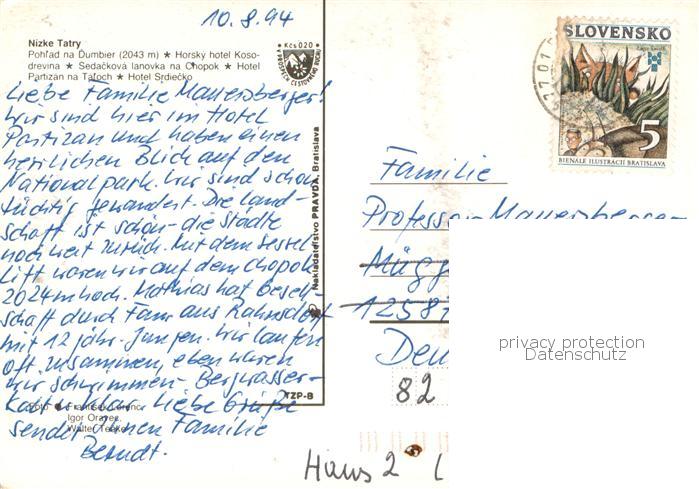 10.8.94
Nízke Tatry
Pohľad na Ďumbier (2043 m) ★ Horský hotel Koso-
drevina ★ Sedačková lanovka na Chopok ★ Hotel
Partizan na Táľoch ★ Hotel Srdiečko
Kčs 020
Liebe Familie Mauersberger!
Wir sind hier im Hotel
Partizan und haben einen
herrlichen Blick auf den
Nationalpark. Wir sind schon
tüchtig gewandert. Die Land-
schaft ist schön - die Städte
noch weit zurück. Mit dem Sessel-
lift waren wir auf dem Chopok
2024 m hoch. Mathias hat Gesell-
schaft durch Fam. aus Rahnsdorf
mit 12 jähr. Jungen. Wir laufen
oft zusammen, eben waren
wir schwimmen - Bergwasser-
kalt + klar. Liebe Grüße
sendet Ihnen Familie
Berndt.
Foto ● František Lorenc
Igor Oravec
Nakladateľstvo PRAVDA, Bratislava
TZP-B
SLOVENSKO
5
BIENÁLE ILUSTRÁCIÍ BRATISLAVA
Familie
Professor Mauersberger
Mügg
1258
Deu
82
Haus 2
privacy protection
Datenschutz